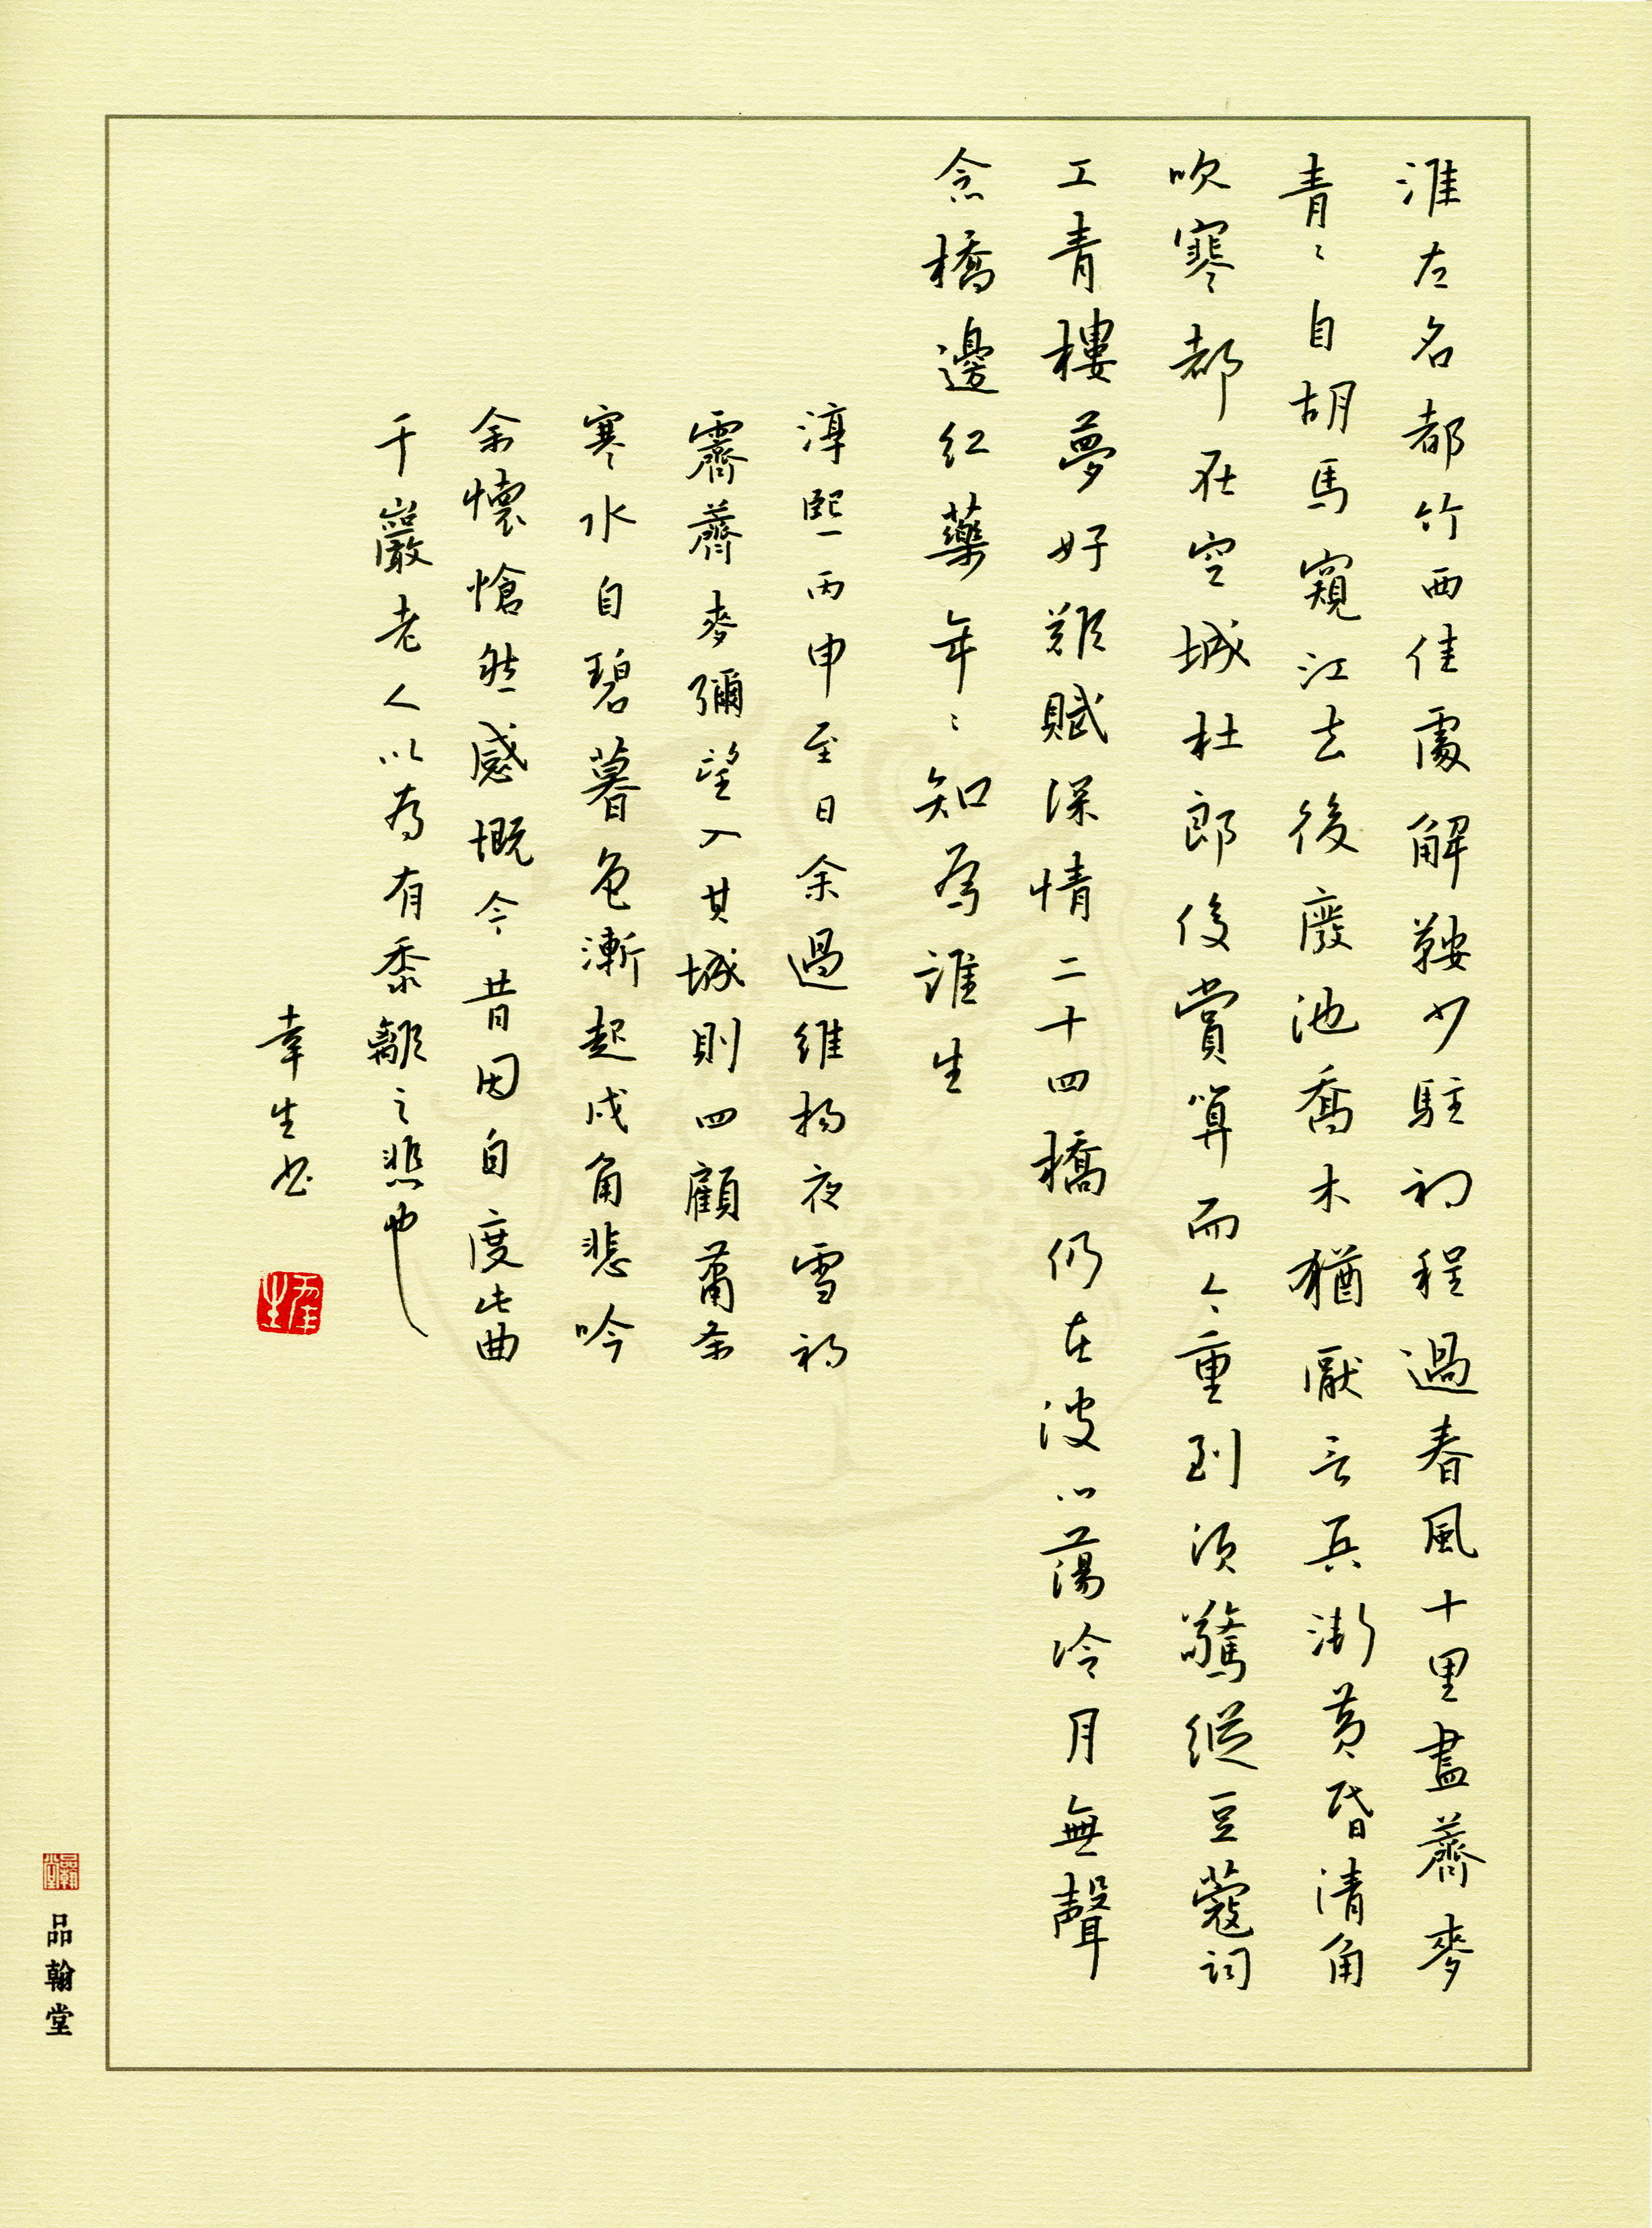 淮左名都竹西佳處解鞍少駐初程過春風十里盡薺麥
青〻自胡馬窺江去後廢池喬木猶厭言兵漸黃昏清角
吹寒都在空城杜郎俊賞算而今重到須驚縱豆蔻詞
工青樓夢好難賦深情二十四橋仍在波心蕩冷月無聲
念橋邊紅藥年〻知為誰生
淳熙丙申至日余過維揚夜雪初
霽薺麥彌望入其城則四顧蕭條
寒水自碧暮色漸起戍角悲吟
余懷愴然感慨今昔因自度此曲
千巖老人以為有黍離之悲也
幸生书
品翰堂
品翰堂